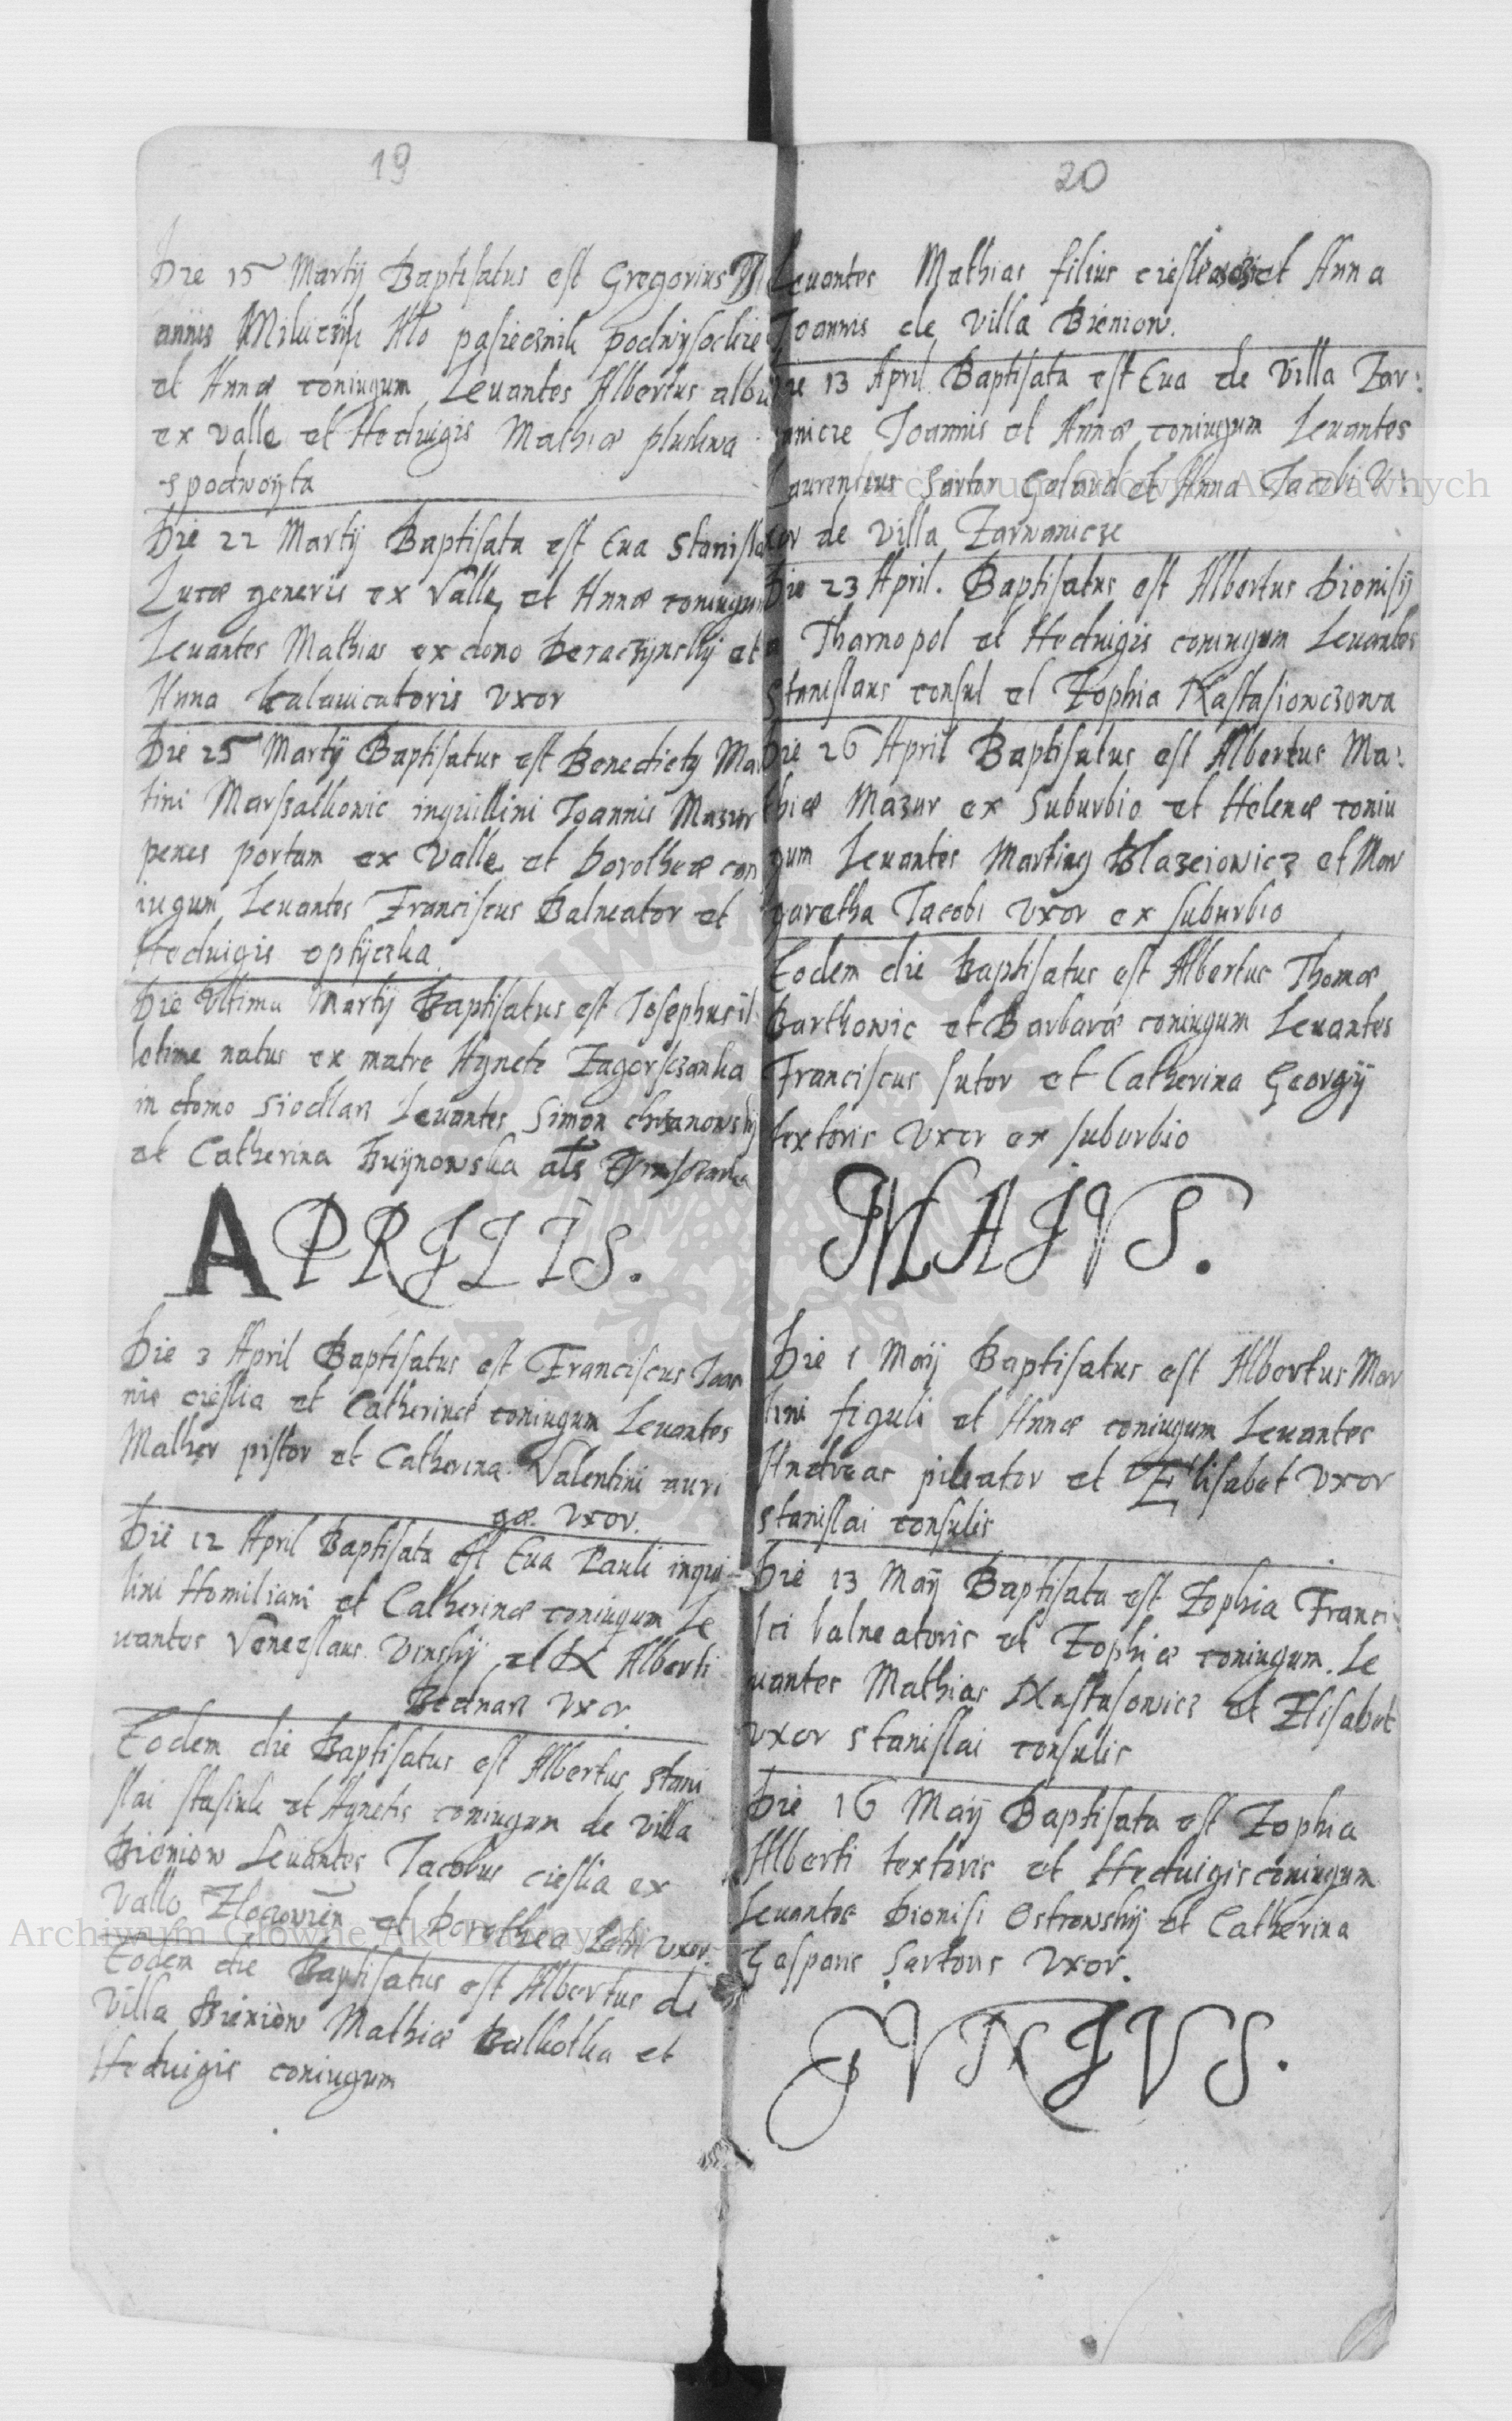 19
Die 15 Martij Baptisatus est Gregorius
annis pasiecznik podwysockie
et Annæ coniugum Levantes Albertus
ex valle et Heduigis Mathiæ
spodwoyta
Die 22 Martij Baptisata est Eua Stanisla
Lucæ generis ex Valle et Annæ coniugum
Leuantes Mathias ex domo et
Anna uxor
Die 25 Martij Baptisatus est Benedictus Mar
tini Marszalkowic inquillini Joannis Mazur
penes portam ex Valle et Dorotheæ con
iugum Leuantes Franciscus Balneator et
Heduigis optyczka
Die Vltima Martij Baptisatus est Josephus il:
letime natus ex matre Agnete
in domo siodlarz Leuantes Simon chrzanowskij
et Catherina als
APRILIS.
Die 3 April Baptisatus est Franciscus Joan
nis cieslia et Catherinæ coniugum Leuantes
Mather pistor et Catherina Valentini auri
gæ uxor.
Die 12 April Baptisata est Eua Pauli inqui-
lini Homiliani et Catherinæ coniugum Le
uantes Venceslaus et Alberti
Bednarz uxor.
Eodem die Baptisatus est Albertus Stani
slai et Agnetis coniugum de Villa
Bieniow Leuantes Jacobus cieslia ex
Valle et Dorothea uxor.
Eodem die Baptisatus est Albertus de
Villa Bieniow Mathiæ et
Heduigis coniugum
20
Leuantes Mathias filius et Anna
Joannis de Villa Bieniow.
Die 13 April Baptisata est Eua de Villa Zar:
wanicze Joannis et Annæ coniugum Leuantes
Laurentius Sartor et Anna Jacobi U:
xor de Villa Zarwanicze
Die 23 April. Baptisatus est Albertus Dionisij
a Tharnopol et Heduigis coniugum Leuantes
Stanislaus consul et Zophia
Die 26 April Baptisatus est Albertus Ma:
thiæ Mazur ex Suburbio et Helenæ coniu
gum Leuantes Martinus Blazeiowicz et Mar
garetha Jacobi Vxor ex suburbio
Eodem die Baptisatus est Albertus Thomæ
Barthowic et Barbaræ coniugum Leuantes
Franciscus sutor et Catherina Georgij
textoris Vxor ex suburbio
MAIVS.
Die 1 Maij Baptisatus est Albertus Mar
tini figuli et Annæ coniugum Leuantes
Andreas pileator et Elisabet Vxor
Stanislai consulis
Die 13 Maij Baptisata est Zophia Franci:
sci balneatoris et Zophiæ coniugum. Le
uantes Mathias et Elisabet
Vxor Stanislai consulis
Die 16 Maij Baptisata est Zophia
Alberti textoris et Heduigis coniugum
Leuantes Dionisi Ostrowskij et Catherina
Gasparis Sartoris Vxor.
IVNIVS.
Archiwum Główne Akt Dawnych
Archiwum Główne Akt Dawnych